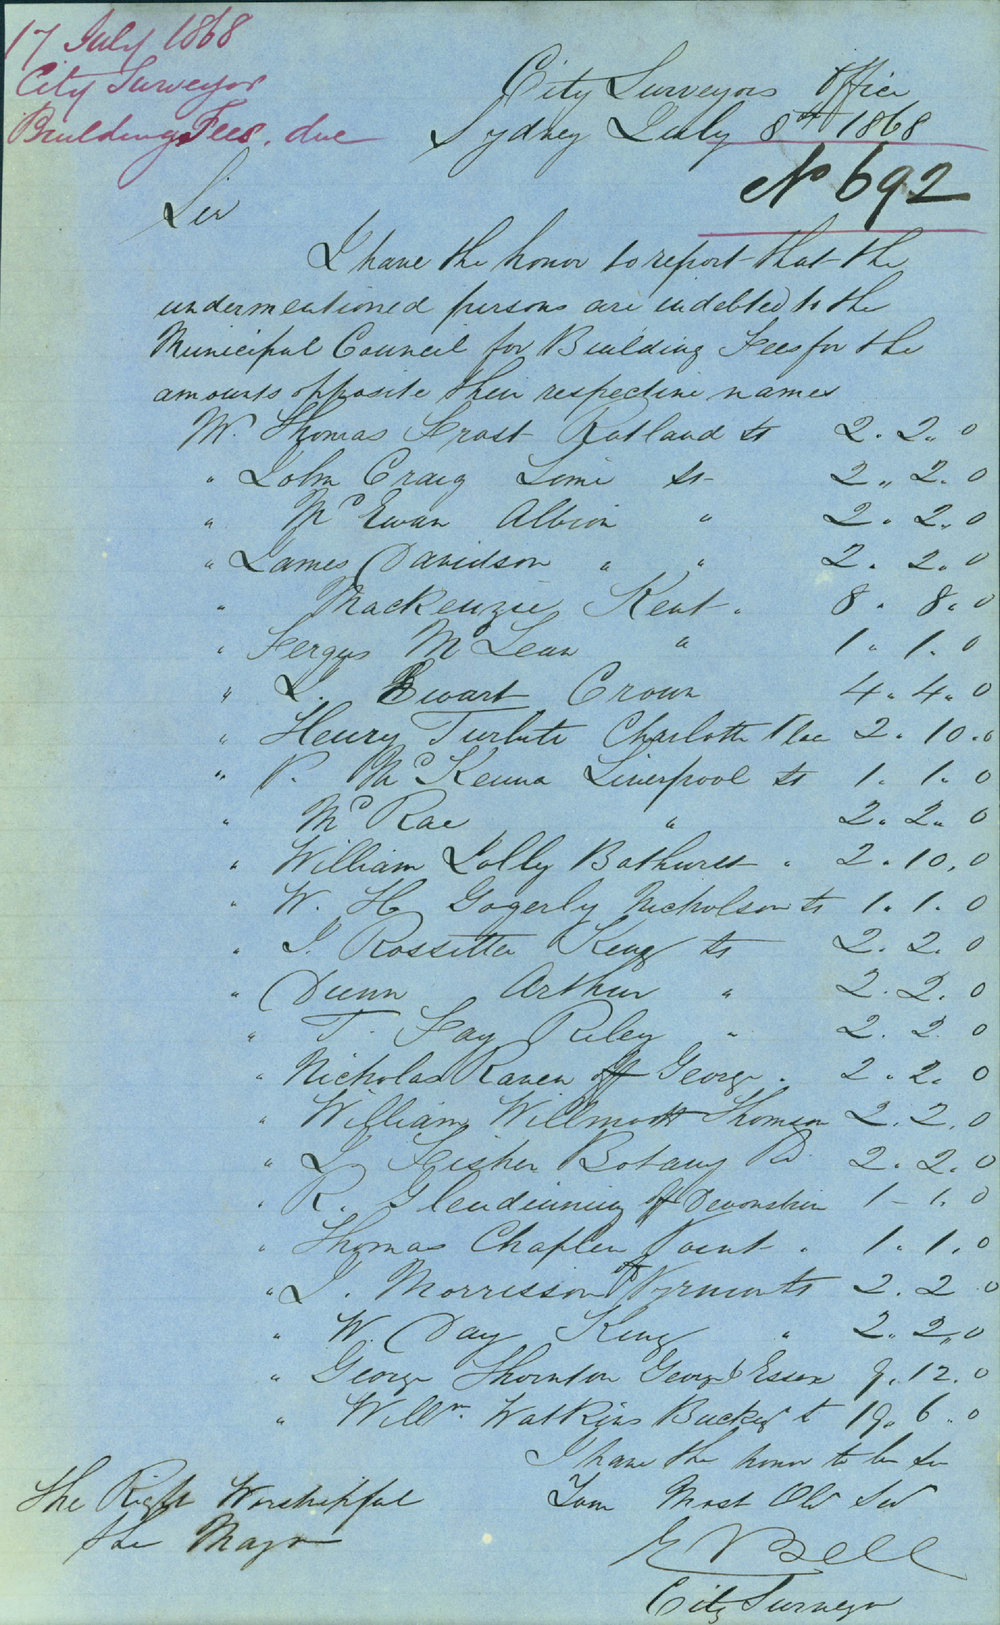 17 July 1868
City Surveyor
Building Fees due
City Surveyors Office
Sydney July 8th 1868
No 692
Sir
I have the honor to report that the
undermentioned persons are indebted to the
Municipal Council for Building Fees for the
amounts opposite their respective names
Mr. Thomas Frost Rutland St 2. 2. 0
" John Craig Lime St 2. 2. 0
" McEwan Albion " 2. 2. 0
" James Davidson " " 2. 2. 0
" Mackenzie Kent . 8. 8. 0
" Fergus McLean " 1. 1. 0
" J. Ewart Crown 4. 4. 0
" Henry Charlotte Place 2. 10. 0
" P. McKenna Liverpool St 1. 1. 0
" McRae " 2. 2. 0
" William Jolly Bathurst . 2. 10. 0
" W. H. Gogerly Nicholson St 1. 1. 0
" J. Rossitter King St 2. 2. 0
" Dunn Arthur " 2. 2. 0
" T. Fay Riley " 2. 2. 0
" Nicholas Raven off George . 2. 2. 0
" William Willmott Thomson 2. 2. 0
" J. Fisher Botany Rd 2. 2. 0
" R. Glendinning off Devonshire 1 - 1. 0
" Thomas Chaplin Point . 1. 1. 0
" J. Morrisson off Pyrmont St 2. 2. 0
" W. Day King " 2. 2. 0
" George Thornton George & Essex 9. 12. 0
" Willm. Watkins St 19. 6. 0
I have the honor to be Sir
Your Most Obt Sert
The Right Worshipful
the Mayor
E Bell
City Surveyor